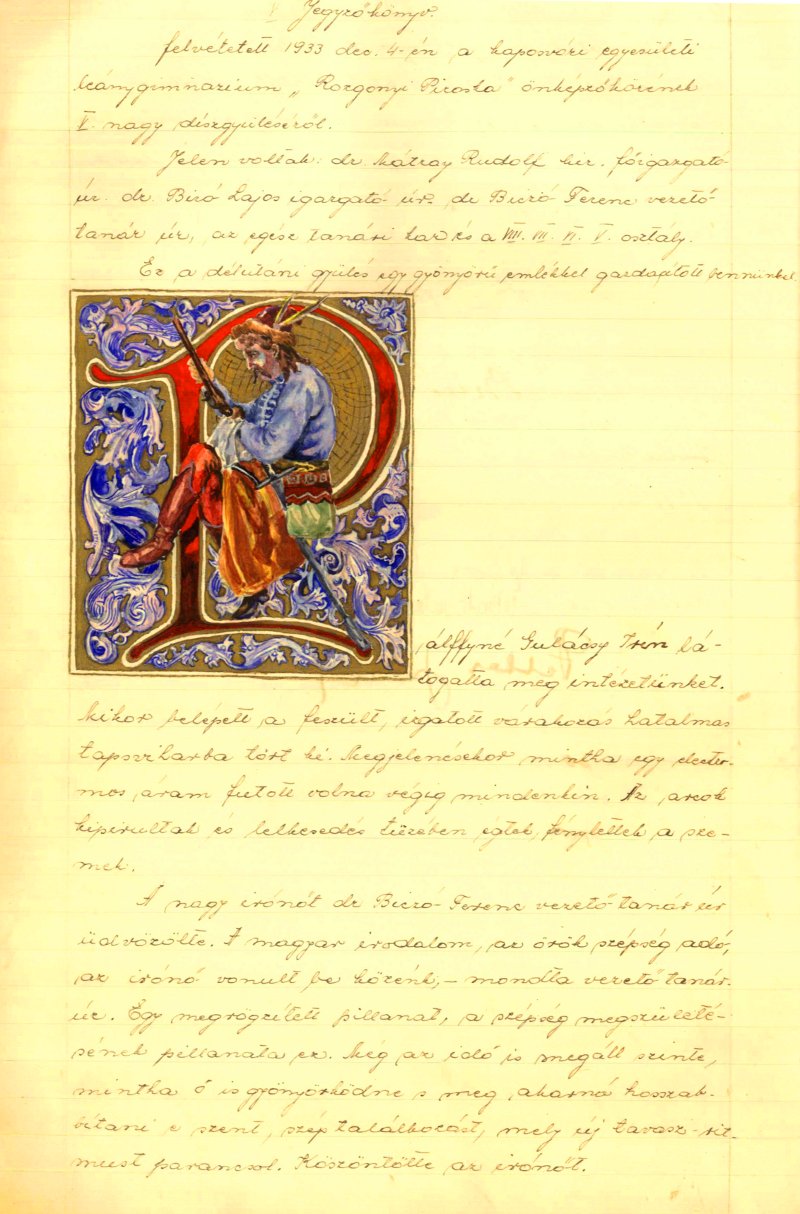 V. Jegyzőkönyv.
felvétetett 1933 dec. 4-én a kaposvári egyesületi
leánygimnázium „Rozgonyi Piroska" önképzőkörének
V. nagy díszgyűléséről.
Jelen voltak: dr. Mátray Rudolf kir. főigazgató
úr. dr. Biró Lajos igazgató úr. dr. Biczó Ferenc vezető
tanár úr, az egész tanári kar és a VIII. VII. VI. V. osztály.
Ez a délutáni gyűlés egy gyönyörű emlékkel gazdagított bennünket.
P
álffyné Gulácsy Irén lá-
togatta meg intézetünket.
Mikor belépett a feszült, izgatott várakozás hatalmas
tapsviharba tört ki. Megjelenésekor mintha egy elektro-
mos áram futott volna végig mindenkin. Az arcok
kipirultak és lelkesedés tüzében égtek, fénylettek a sze-
mek.
A nagy írónőt dr Biczó Ferenc vezető tanár úr
üdvözölte. A magyar irodalom, az örök szépség adó,
az írónő vonult be közénk, – mondta vezető tanár
úr. Egy megrögzített pillanat, a szépség megszületé-
sének pillanata ez. Még az idő is megáll szinte,
mintha ő is gyönyörködne s meg akarná hosszab-
bítani e szent, szép találkozást, mely új tavasz-rit-
must parancsol. Köszöntötte az írónőt.